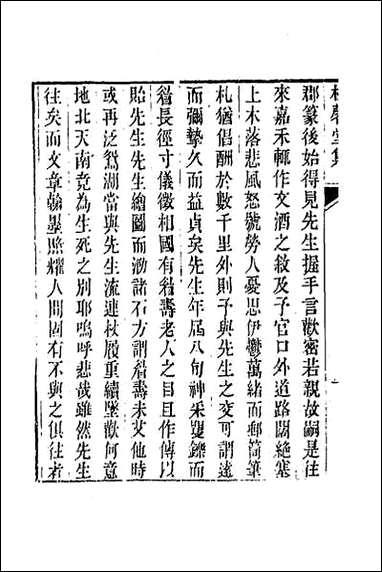 郡篆後始得見先生握手言歡密若親故嗣是往
來嘉禾輒作文酒之敘及予官口外道路闊絶塞
上木落悲風怒號勞人憂思伊鬱萬緒而郵筒筆
札猶倡酬於數千里外則予與先生之交可謂遠
而彌摯久而益貞矣先生年屆八旬神采矍鑠而
眉長徑寸儀徵相國有眉壽老人之目且作傳以
貽先生先生繪圖而泐諸石方謂眉壽未艾他時
或再泛鴛湖當與先生流連杖履重續墜歡何意
地北天南竟為生死之別耶嗚呼悲哉雖然先生
往矣而文章翰墨照耀人間固有不與之俱往者